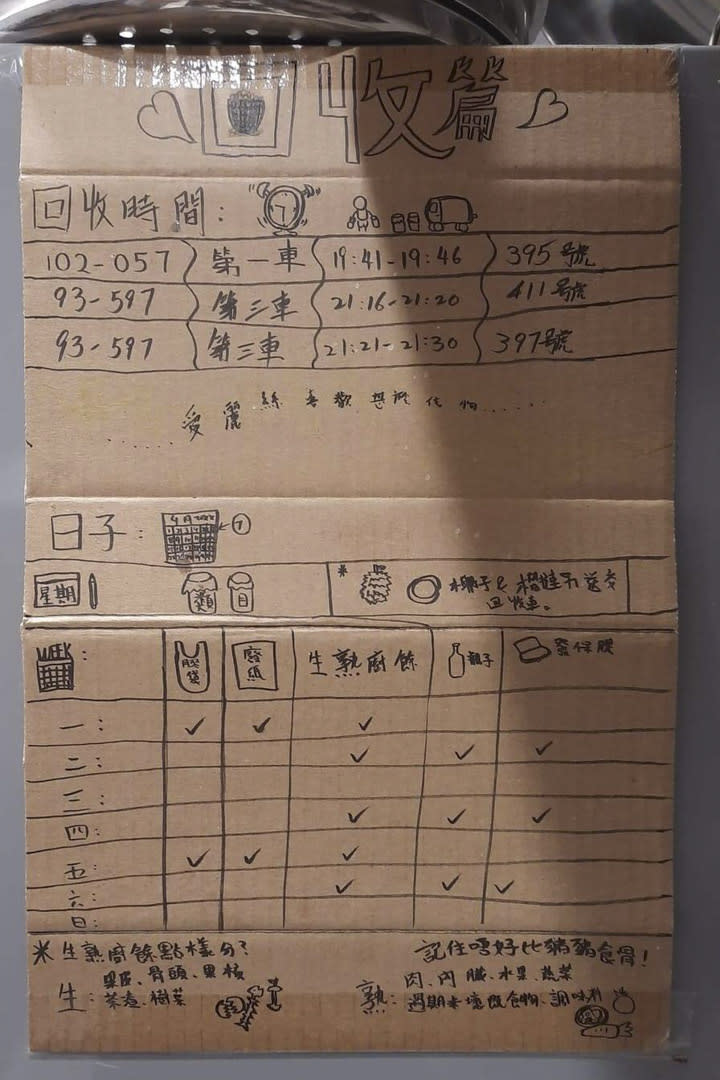 回收篇
回收時間：
102-057 第一車 19:41-19:46 395號
93-597 第三車 21:16-21:20 411號
93-597 第三車 21:21-21:30 397號
......愛麗絲喜歡
日子：
星期 類 日
*椰子&榴槤不送交
回收車。
WEEK： 膠袋 廢紙 生熟廚餘 瓶子 發保膠
一： ✓ ✓ ✓
二： ✓ ✓ ✓
三：
四： ✓ ✓ ✓
五： ✓ ✓ ✓
六： ✓ ✓ ✓
日：
*生熟廚餘點樣分?
記住唔好比豬豬食骨!
生：果皮、骨頭、果核
茶渣、樹葉
熟：肉、內臟、水果、蔬菜
過期未壞既食物、調味料